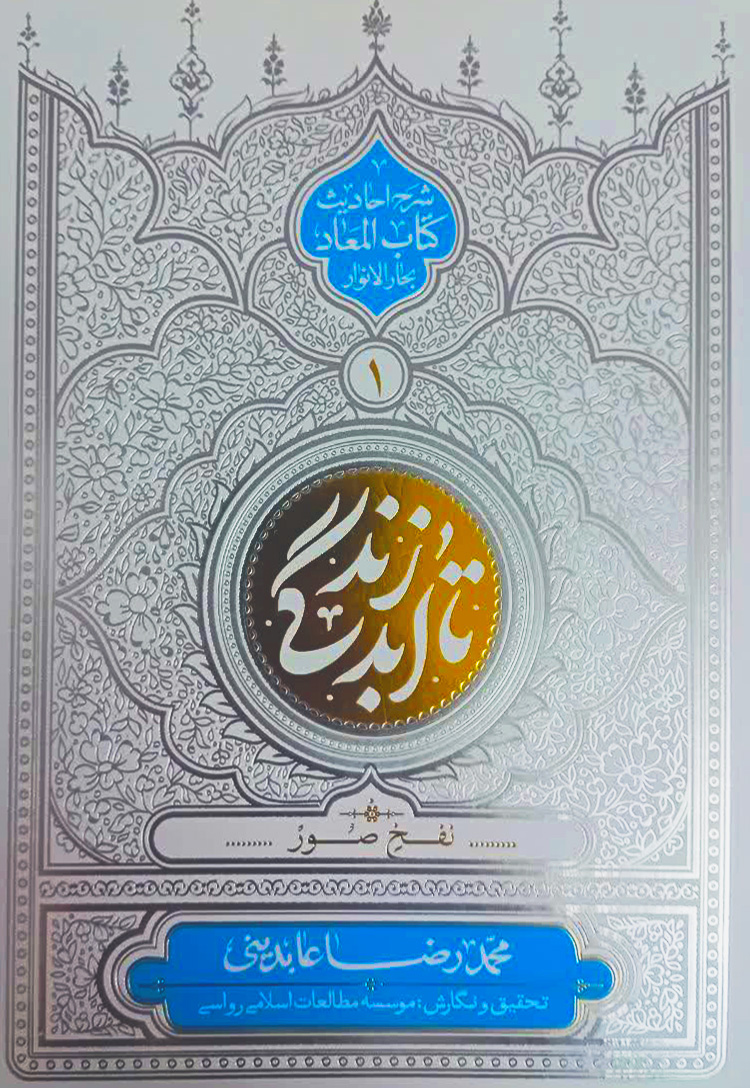 شرح احادیث
کتاب المعاد
بحار الانوار
۱
زندگی
تا ابد
نفخِ صور
محمّدرضا عابدینی
تحقیق و نگارش: موسسه مطالعات اسلامی رواسی